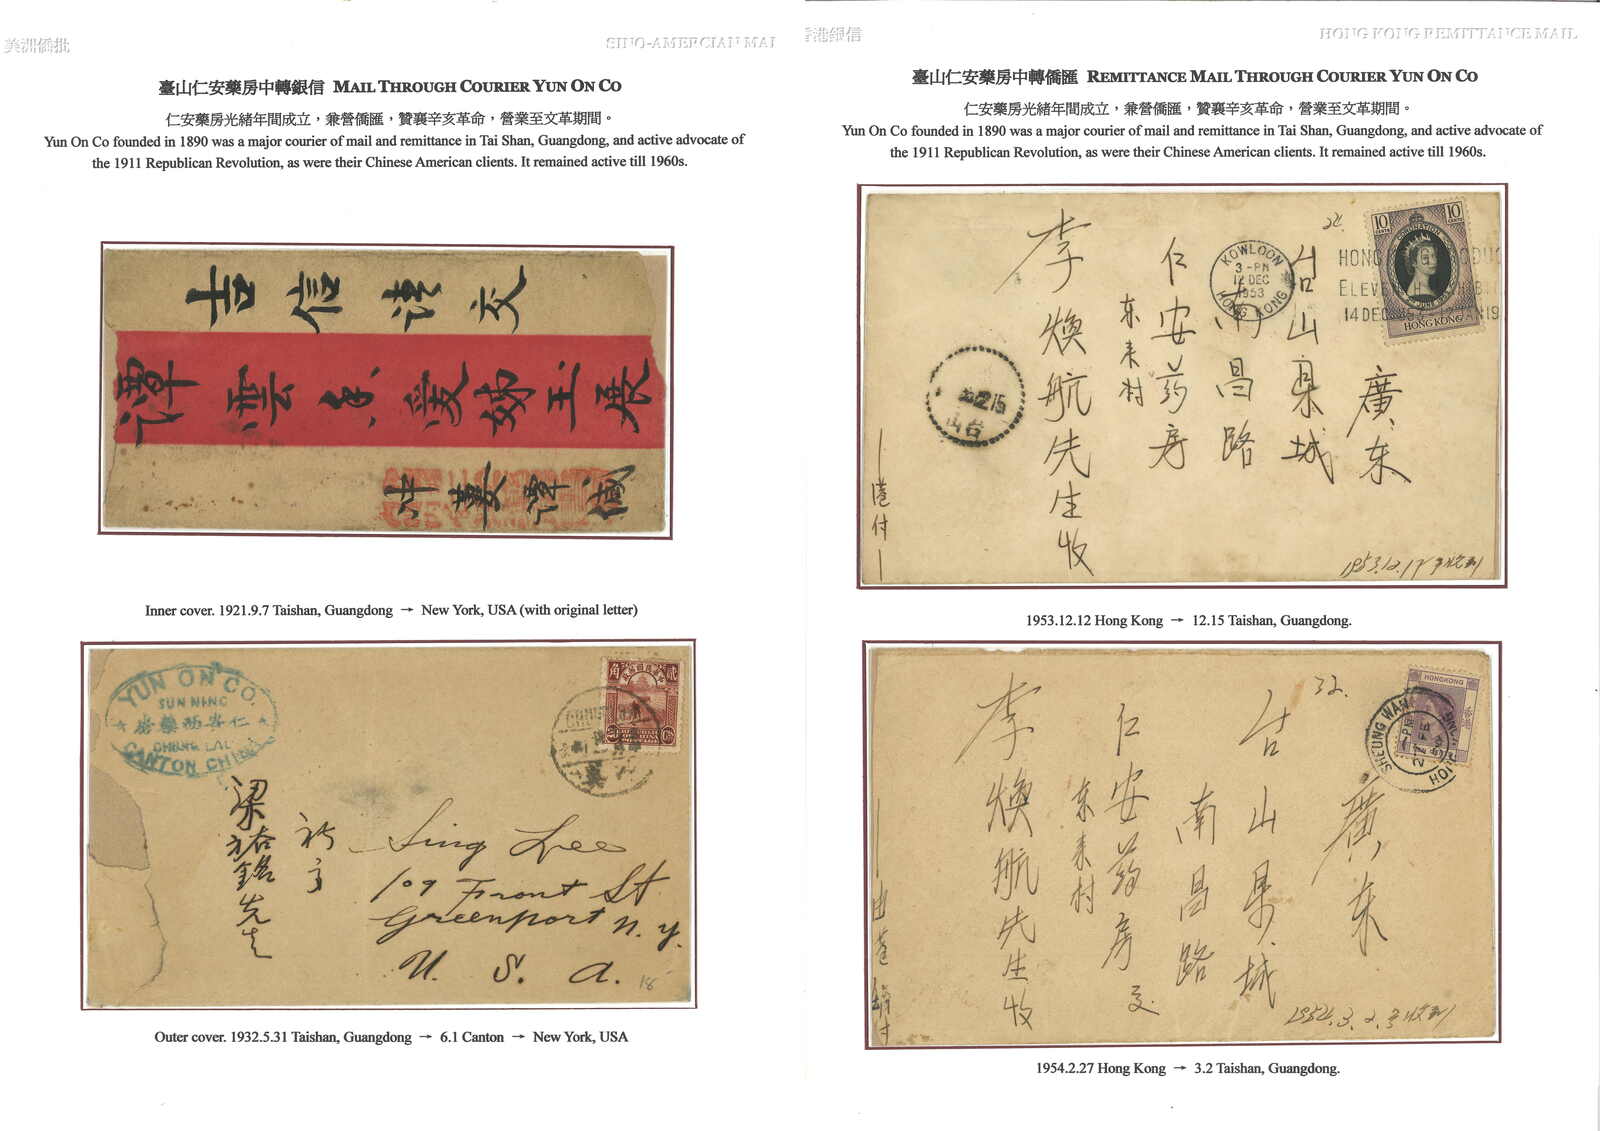 美洲僑批
SINO-AMERCIAN MAI
臺山仁安藥房中轉銀信 MAIL THROUGH COURIER YUN ON CO
仁安藥房光緒年間成立，兼營僑匯，贊襄辛亥革命，營業至文革期間。
Yun On Co founded in 1890 was a major courier of mail and remittance in Tai Shan, Guangdong, and active advocate of
the 1911 Republican Revolution, as were their Chinese American clients. It remained active till 1960s.
吉信 交
譚雲 愛 玉展
譚
Inner cover. 1921.9.7 Taishan, Guangdong → New York, USA (with original letter)
YUN ON CO.
SUN NING
仁安西藥房
CHUNG LAU
CANTON CHINA
角 貳
梁 銘先生
Sing Lee
109 Front St
Greenport N.Y.
U. S. A.
Outer cover. 1932.5.31 Taishan, Guangdong → 6.1 Canton → New York, USA
香港銀信
HONG KONG REMITTANCE MAIL
臺山仁安藥房中轉僑匯 REMITTANCE MAIL THROUGH COURIER YUN ON CO
仁安藥房光緒年間成立，兼營僑匯，贊襄辛亥革命，營業至文革期間。
Yun On Co founded in 1890 was a major courier of mail and remittance in Tai Shan, Guangdong, and active advocate of
the 1911 Republican Revolution, as were their Chinese American clients. It remained active till 1960s.
10 CENTS 10 CENTS
CORONATION
HONG KONG
KOWLOON
3 - PM
12 DEC
1953
HONG KONG
廣东
台山县城
南昌路
仁安药房
东来村
李煥航先生收
港付
台山
1953.12.17
1953.12.12 Hong Kong → 12.15 Taishan, Guangdong.
32.
HONGKONG
SHEUNG WAN
廣东
台山县城
南昌路
仁安药房
东来村
李煥航先生收
由港 付
1954.3.2.
1954.2.27 Hong Kong → 3.2 Taishan, Guangdong.